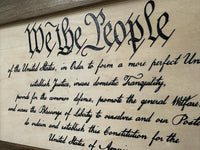 We the People
of the United States, in Order to form a more perfect Un
establish Justice, insure domestic Tranquility,
provide for the common defence, promote the general Welfare,
and secure the Blessings of Liberty to ourselves and our Poste
to ordain and establish this Constitution for the
United States of Ameri